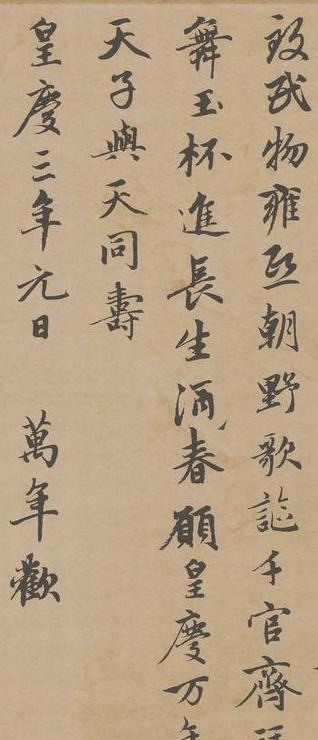 致民物雍熙朝野歌謳千官齊
舞玉杯進長生酒春願皇慶万年
天子與天同壽
皇慶三年元日 萬年歡